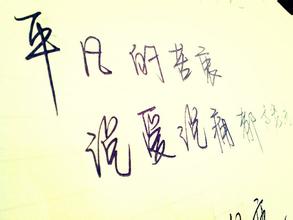 平凡的苦衷
说爱说痛都